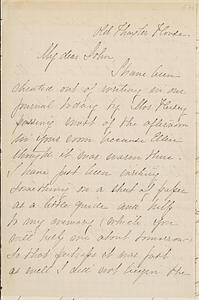 Old Thurster House.
My dear John,
I have been
cheated out of writing in our
journal today by Mrs
passing most of the afternoon
in your room because Ellen
thought it was warm there.
I have just been writing
something on a sheet of paper
as a little guide and help
to my memory (which you
will help me about tomorrow
So that perhaps it was just
as well I did not begin the